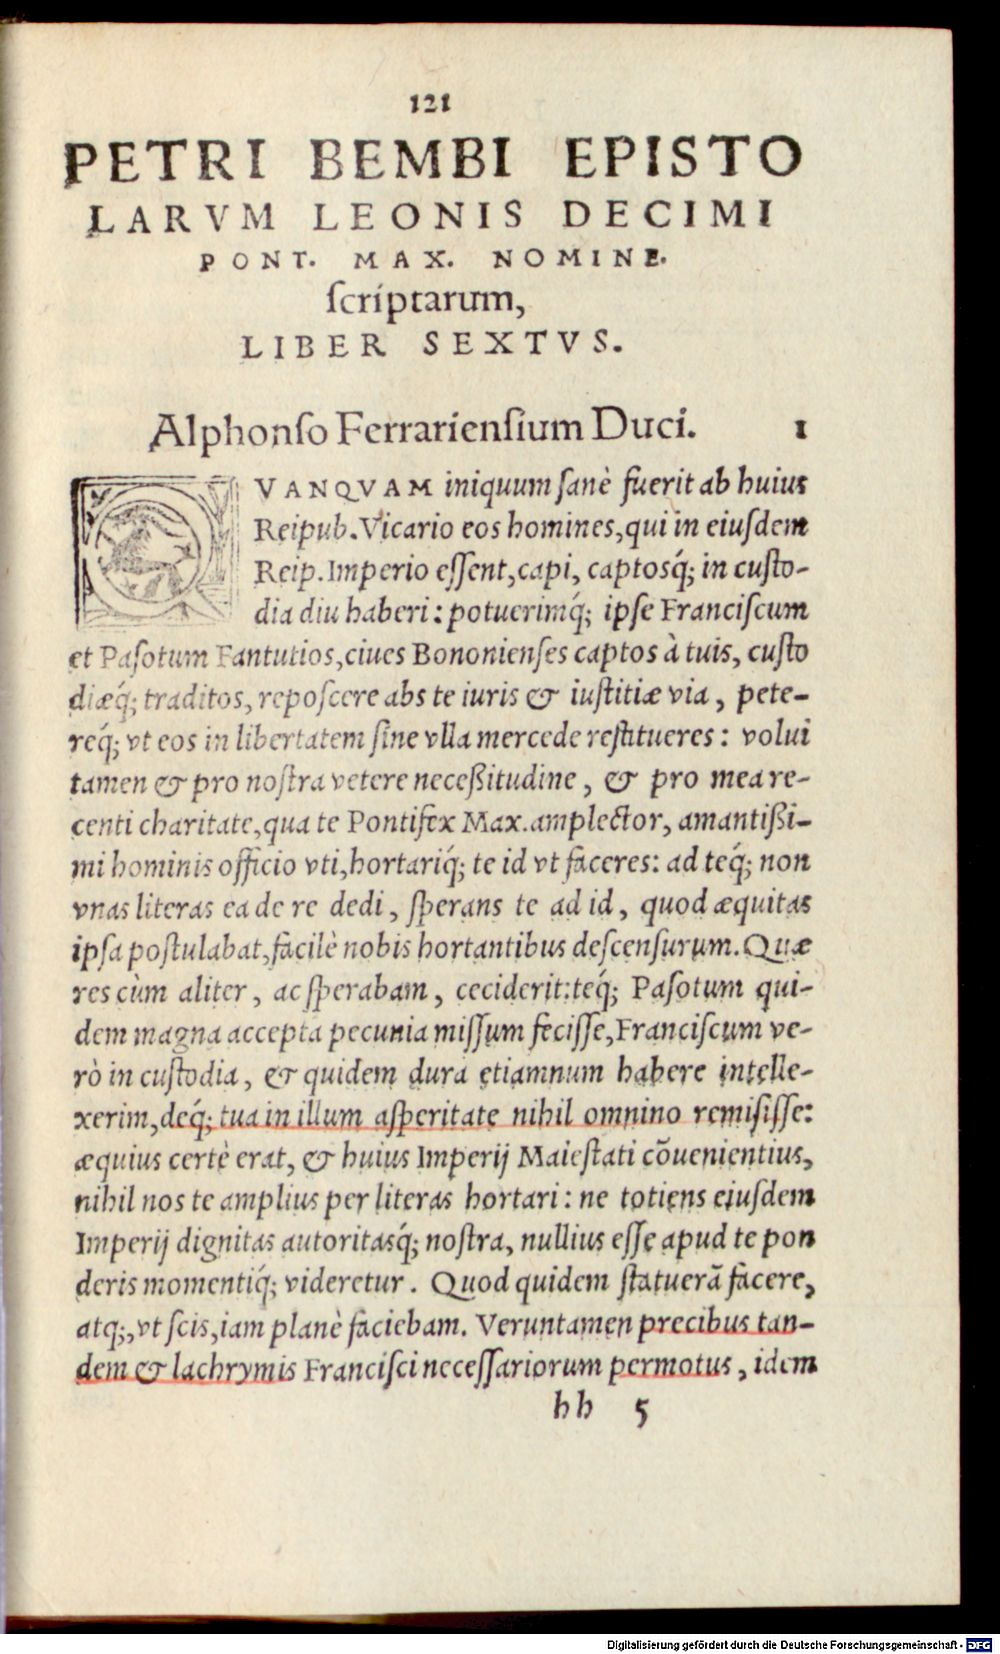 121
PETRI BEMBI EPISTO
LARVM LEONIS DECIMI
PONT. MAX. NOMINE.
ſcriptarum,
LIBER SEXTVS.
Alphonſo Ferrarienſium Duci. 1
QVANQVAM iniquum ſanè fuerit ab huius
Reipub. Vicario eos homines, qui in eiuſdem
Reip. Imperio eſſent, capi, captosq́; in cuſto-
dia diu haberi: potuerimq́; ipſe Franciſcum
et Paſotum Fantutios, ciues Bononienſes captos à tuis, cuſto
diæq́; traditos, repoſcere abs te iuris & iuſtitiæ via, pete-
req́; vt eos in libertatem ſine vlla mercede reſtitueres: volui
tamen & pro noſtra vetere neceßitudine, & pro mea re-
centi charitate, qua te Pontifex Max. amplector, amantißi-
mi hominis officio vti, hortariq́; te id vt faceres: ad teq́; non
vnas literas ea de re dedi, ſperans te ad id, quod æquitas
ipſa poſtulabat, facilè nobis hortantibus deſcenſurum. Quæ
res cùm aliter, ac ſperabam, ceciderit: teq́; Paſotum qui-
dem magna accepta pecunia miſſum feciſſe, Franciſcum ve-
rò in cuſtodia, & quidem dura etiamnum habere intelle-
xerim, deq́; tua in illum aſperitate nihil omnino remiſiſſe:
æquius certè erat, & huius Imperij Maieſtati cōuenientius,
nihil nos te amplius per literas hortari: ne totiens eiuſdem
Imperij dignitas autoritasq́; noſtra, nullius eſſe apud te pon
deris momentiq́; videretur. Quod quidem ſtatuerā facere,
atq;, vt ſcis, iam planè faciebam. Veruntamen precibus tan-
dem & lachrymis Franciſci neceſſariorum permotus, idem
hh 5
Digitalisierung gefördert durch die Deutsche Forschungsgemeinschaft - DFG